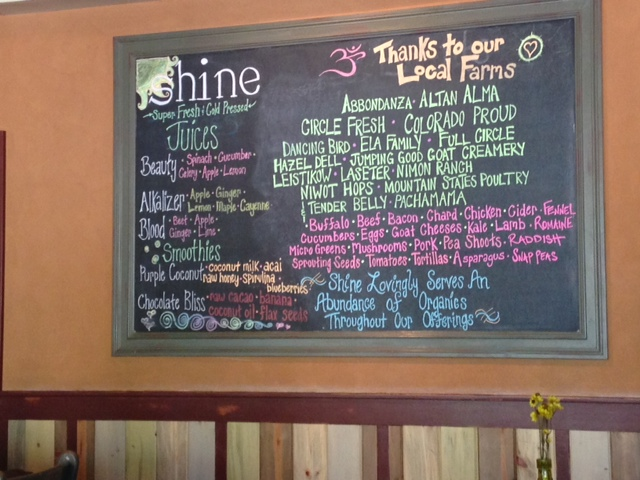 Shine
Super Fresh & Cold Pressed
Juices
Beauty Spinach · Cucumber ·
Celery · Apple · Lemon
Alkalizer Apple · Ginger ·
Lemon · Maple · Cayenne
Blood Beet · Apple ·
Ginger · Lime
Smoothies
Purple Coconut coconut milk · acai
raw honey · spirulina ·
blueberries
Chocolate Bliss raw cacao · banana
coconut oil · flax seeds
Thanks to our
Local Farms
Abbondanza · Altan Alma
Circle Fresh · Colorado Proud
Dancing Bird · Ela Family · Full Circle
Hazel Dell · Jumping Good Goat Creamery
Leistikow · Laseter · Nimon Ranch
Niwot Hops · Mountain States Poultry
Tender Belly · Pachamama
Buffalo · Beef · Bacon · Chard · Chicken · Cider · Fennel
Cucumbers · Eggs · Goat Cheeses · Kale · Lamb · Romaine
Micro Greens · Mushrooms · Pork · Pea Shoots · Raddish
Sprouting Seeds · Tomatoes · Tortillas · Asparagus · Snap Peas
Shine Lovingly Serves An
Abundance of Organics
Throughout Our Offerings